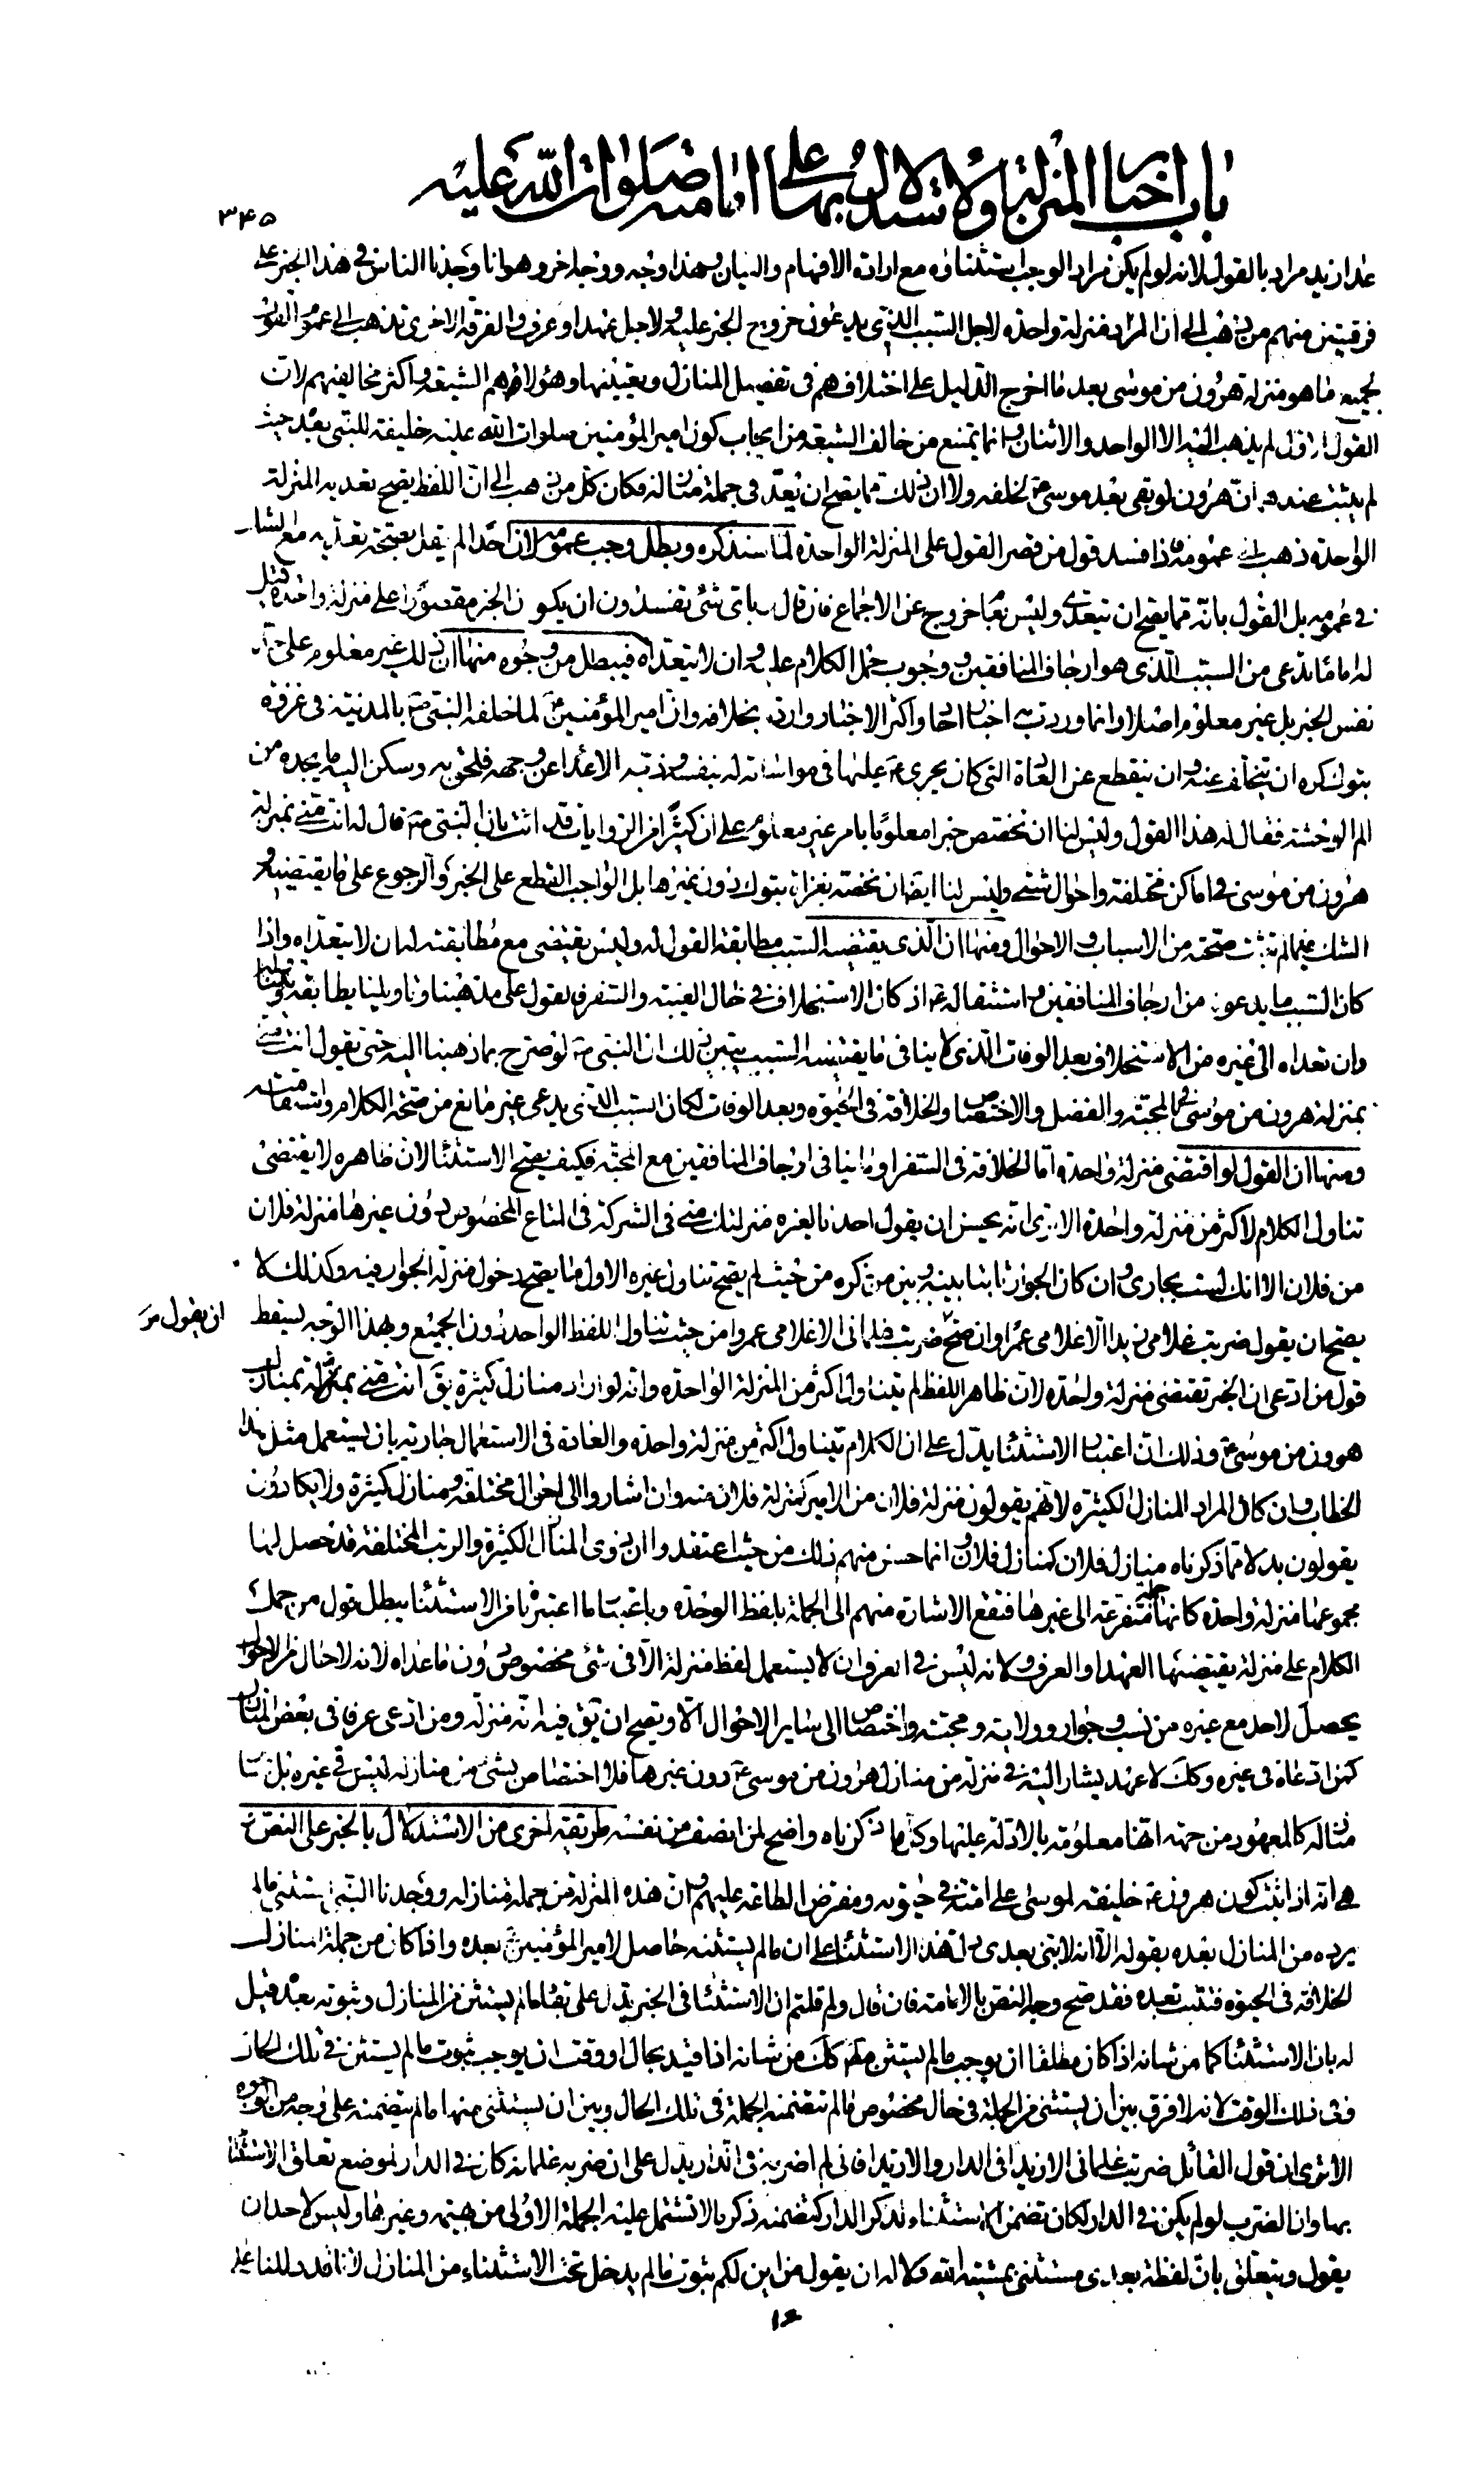 باب اخبار المنزلة والاستدلال بها على امامته صلوات الله عليه
۳۴۵
عدا زيد مراد بالقول لانه لو لم يكن مراد الوجب استثناؤه مع ارادة الافهام والبيان وهذا وجه ووجه اخر وهو انا وجدنا الناس في هذا الخبر على
فرقتين منهم من ذهب الى ان المراد منزلة واحدة لاجل السبب الذي يدعون خروج الخبر عليه ولاجل عهد او عرف والفرقة الاخرى تذهب الى عموم القول
لجميع ما هو منزلة هرون من موسى بعد ما اخرج الدليل على اختلافهم في تفصيل المنازل وتعيينها وهؤلاء هم الشيعة واكثر مخالفيهم لان
القول الاول لم يذهب اليه الا الواحد والاثنان وانما يمتنع من خالف الشيعة من ايجاب كون امير المؤمنين صلوات الله عليه خليفة للنبي بعده حيث
لم يثبت عندهم ان هرون لو بقي بعد موسى لخلفه ولا ان ذلك مما يصح ان يعد في جملة منازله فكان كل من ذهب الى ان اللفظ يصح تعديه المنزلة
الواحدة ذهب الى عمومه فاذا فسد قول من قصر القول على المنزلة الواحدة لما سنذكره وبطل وجب عمومه لان احدا لم يقل بصحة تعديه مع الشك
في عمومه بل القول بانه مما يصح ان يتعدى وليس بعام خروج عن الاجماع فان قال باي شئ تفسدون ان يكون الخبر مقصورا على منزلة واحدة قيل
له اما ما تدعى من السبب الذي هو ارجاف المنافقين ووجوب حمل الكلام عليه وان لا يتعداه فيبطل من وجوه منها ان ذلك غير معلوم على حد
نفس الخبر بل غير معلوم اصلا وانما وردت به اخبار احاد واكثر الاخبار واردة بخلافه وان امير المؤمنين ع لما خلفه النبي ص بالمدينة في غزوة
تبوك كره ان يتخلف عنه وان ينقطع عن العادة التي كان يجري ع عليها في مواساته له بنفسه وذبه الاعداء عن وجهه فلحق به وسكن اليه ما يجده من
الم الوحشة فقال له هذا القول وليس لنا ان نخصص خبرا معلوما بامر غير معلوم على ان كثيرا من الروايات قد اتت بان النبي ص قال له انت مني بمنزلة
هرون من موسى في اماكن مختلفة واحوال شتى وليس لنا ايضا ان نخصه بغزاة تبوك دون غيرها بل الواجب القطع على الخبر والرجوع على ما يقتضيه و
الشك فيما لم تثبت صحته من الاسباب والاحوال ومنها ان الذي يقتضيه السبب مطابقة القول له وليس يقتضي مع مطابقته له ان لا يتعداه واذا
كان السبب ما يدعون من ارجاف المنافقين واستثقاله ع اذ كان الاستخلاف في حال الغيبة والسفر فالقول على مذهبنا وتاويلنا يطابقه ويتناوله
وان تعداه الى غيره من الاستخلاف بعد الوفات الذي لا ينافي ما يقتضيه السبب يبين ذلك ان النبي ص لو صرح بما ذهبنا اليه حتى يقول انت مني
بمنزلة هرون من موسى في المحبة والفضل والاختصاص والخلافة في الحيوة وبعد الوفات لكان السبب الذي يدعى غير مانع من صحة الكلام واستقامته
ومنها ان القول لو اقتضى منزلة واحدة اما الخلافة في السفر او ما ينافي ارجاف المنافقين مع المحبة فكيف يصح الاستثناء لان ظاهره لا يقتضي
تناول الكلام لاكثر من منزلة واحدة الا ترى انه يحسن ان يقول احدنا لغيره منزلتك مني في الشركة في المتاع المخصوص دون غيرها منزلة فلان
من فلان الا انك لست بجاري وان كان الجوار ثابتا بينه وبين من ذكره من حيث لم يصح تناول غيره الاول ما يصح دخول منزلة الجوار فيه وكذلك لا
يصح ان يقول ضربت غلامي زيدا الا غلامي عمرا وان صح ضربت غلماني الا غلامي عمروا من حيث تناول اللفظ الواحد دون الجميع وبهذا الوجه يسقط
ان يقول مر
قول من ادعى ان الخبر تقتضي منزلة واحدة لان ظاهر اللفظ لم يتناول اكثر من المنزلة الواحدة وانه لو اراد منازل كثيرة يق انت مني بمنزلة بمنازل
هرون من موسى ع وذلك ان اعتبار الاستثناء يدل على ان الكلام يتناول اكثر من منزلة واحدة والعادة في الاستعمال جارية بان يستعمل مثل هذا
الخطاب وان كان المراد المنازل الكثيرة لانهم يقولون منزلة فلان من الامير كمنزلة فلان منه وان اشاروا الى احوال مختلفة ومنازل كثيرة ولا يكادون
يقولون بدلا مما ذكرناه منازل فلان كمنازل فلان وانما حسن منهم ذلك من حيث اعتقدوا ان ذوى المنازل الكثيرة والرتب المختلفة قد حصل لها
بمجموعها منزلة واحدة كانها جملة متفرعة الى غيرها فتقع الاشارة منهم الى الجملة بلفظ الوحدة وباعتبار ما اعتبرناه من الاستثناء يبطل قول من حمل
الكلام على منزلة يقتضيها العهد او العرف ولانه ليس في العرف ان لا يستعمل لفظ منزلة الا في شئ مخصوص دون ما عداه لانه لا حال من الاحوال
يحصل لاحد مع غيره من نسب وجوار وولاية ومحبة واختصاص الى ساير الاحوال الا ويصح ان يق فيه انه منزلة ومن ادعى عرفا في بعض المنازل
كمن ادعاه في غيره وكك لا عهد يشار اليه في منزلة من منازل هرون من موسى ع دون غيرها فلا اختصاص بشئ من منازله ليس في غيره بل ساير
منازله كالمعهود من جهة انها معلومة بالادلة عليها وكل ما ذكرناه واضح لمن انصف من نفسه طريقة اخرى من الاستدلال بالخبر على النص و
هي انه اذا ثبت كون هرون ع خليفة لموسى على امته في حيوته ومفترض الطاعة عليهم وان هذه المنزلة من جملة منازله ووجدنا النبي استثنى ما لم
يرده من المنازل بعده بقوله الا انه لا نبي بعدى دل هذا الاستثناء على ان ما لم يستثنه حاصل لامير المؤمنين بعده واذا كان من جملة المنازل
الخلافة في الحيوة فتثبت بعده فقد صح وجه النص بالامامة فان قال ولم قلتم ان الاستثناء في الخبر يدل على بقاء ما لم يستثن من المنازل وثبوته بعده قيل
له بان الاستثناء كما من شانه اذا كان مطلقا ان يوجب ما لم يستثن مطلقا كك من شانه اذا قيد بحال او وقت ان يوجب ثبوت ما لم يستثن في تلك الحال
وفي ذلك الوقت لانه لا فرق بين ان يستثنى من الجملة في حال مخصوص ما لم تتضمنه الجملة في تلك الحال وبين ان يستثنى منها ما لم يتضمنه على وجه من الوجوه
الا ترى ان قول القائل ضربت غلماني الا زيدا في الدار والا زيدا فاني لم اضربه في الدار يدل على ان ضربه غلمانه كان في الدار لموضع تعلق الاستثناء
بها وان الضرب لو لم يكن في الدار لكان تضمن الاستثناء لذكر الدار كتضمنه ذكر ما لا تشتمل عليه الجملة الاولى من بهيمة وغيرها وليس لاحد ان
يقول ويتعلق بان لفظة بعدى مستثنى بمشية الله ولا له ان يقول من اين لكم ثبوت ما لم يدخل تحت الاستثناء من المنازل لانا قد دللنا على